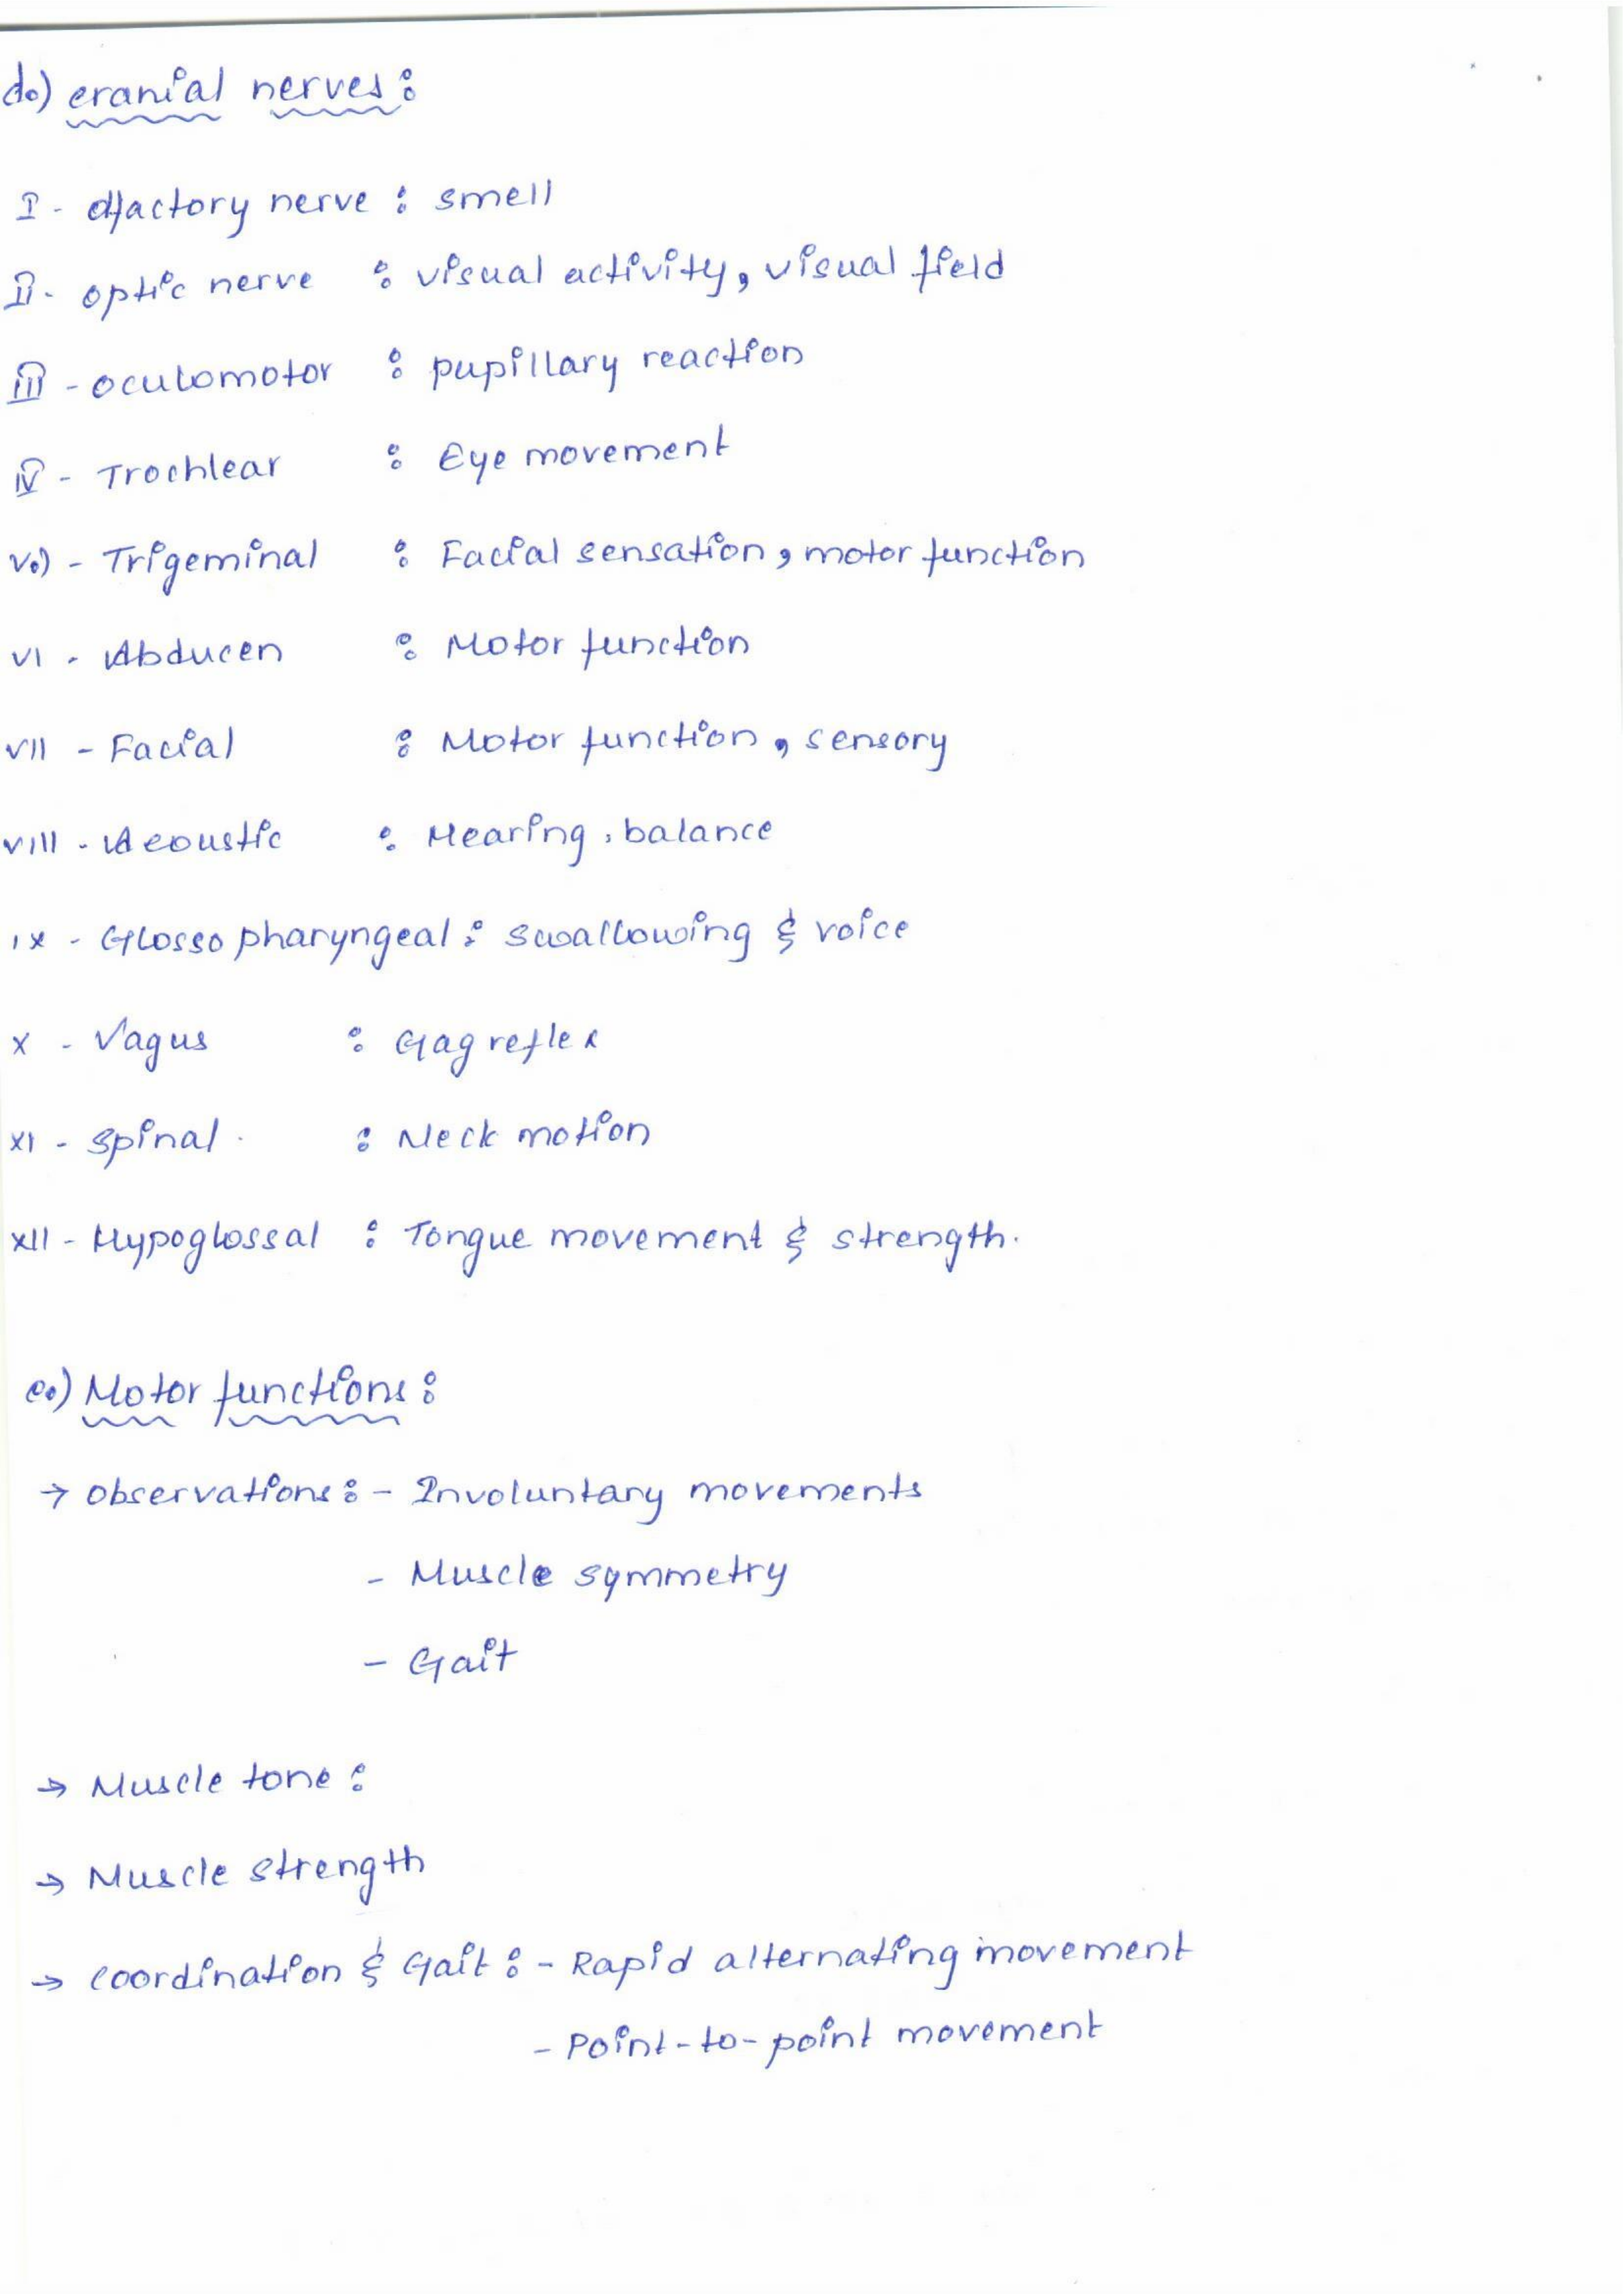 d.) cranial nerves :
I - olfactory nerve : smell
II - optic nerve : visual activity, visual field
III - oculomotor : pupillary reaction
IV - Trochlear : Eye movement
V.) - Trigeminal : Facial sensation, motor function
VI - Abducen : Motor function
VII - Facial : Motor function, sensory
VIII - Acoustic : Hearing, balance
IX - Glosso pharyngeal : swallowing & voice
X - Vagus : Gag reflex
XI - spinal : Neck motion
XII - Hypoglossal : Tongue movement & strength.
e.) Motor functions :
→ observations : - Involuntary movements
- Muscle symmetry
- Gait
→ Muscle tone :
→ Muscle strength
→ coordination & Gait : - Rapid alternating movement
- Point-to-point movement